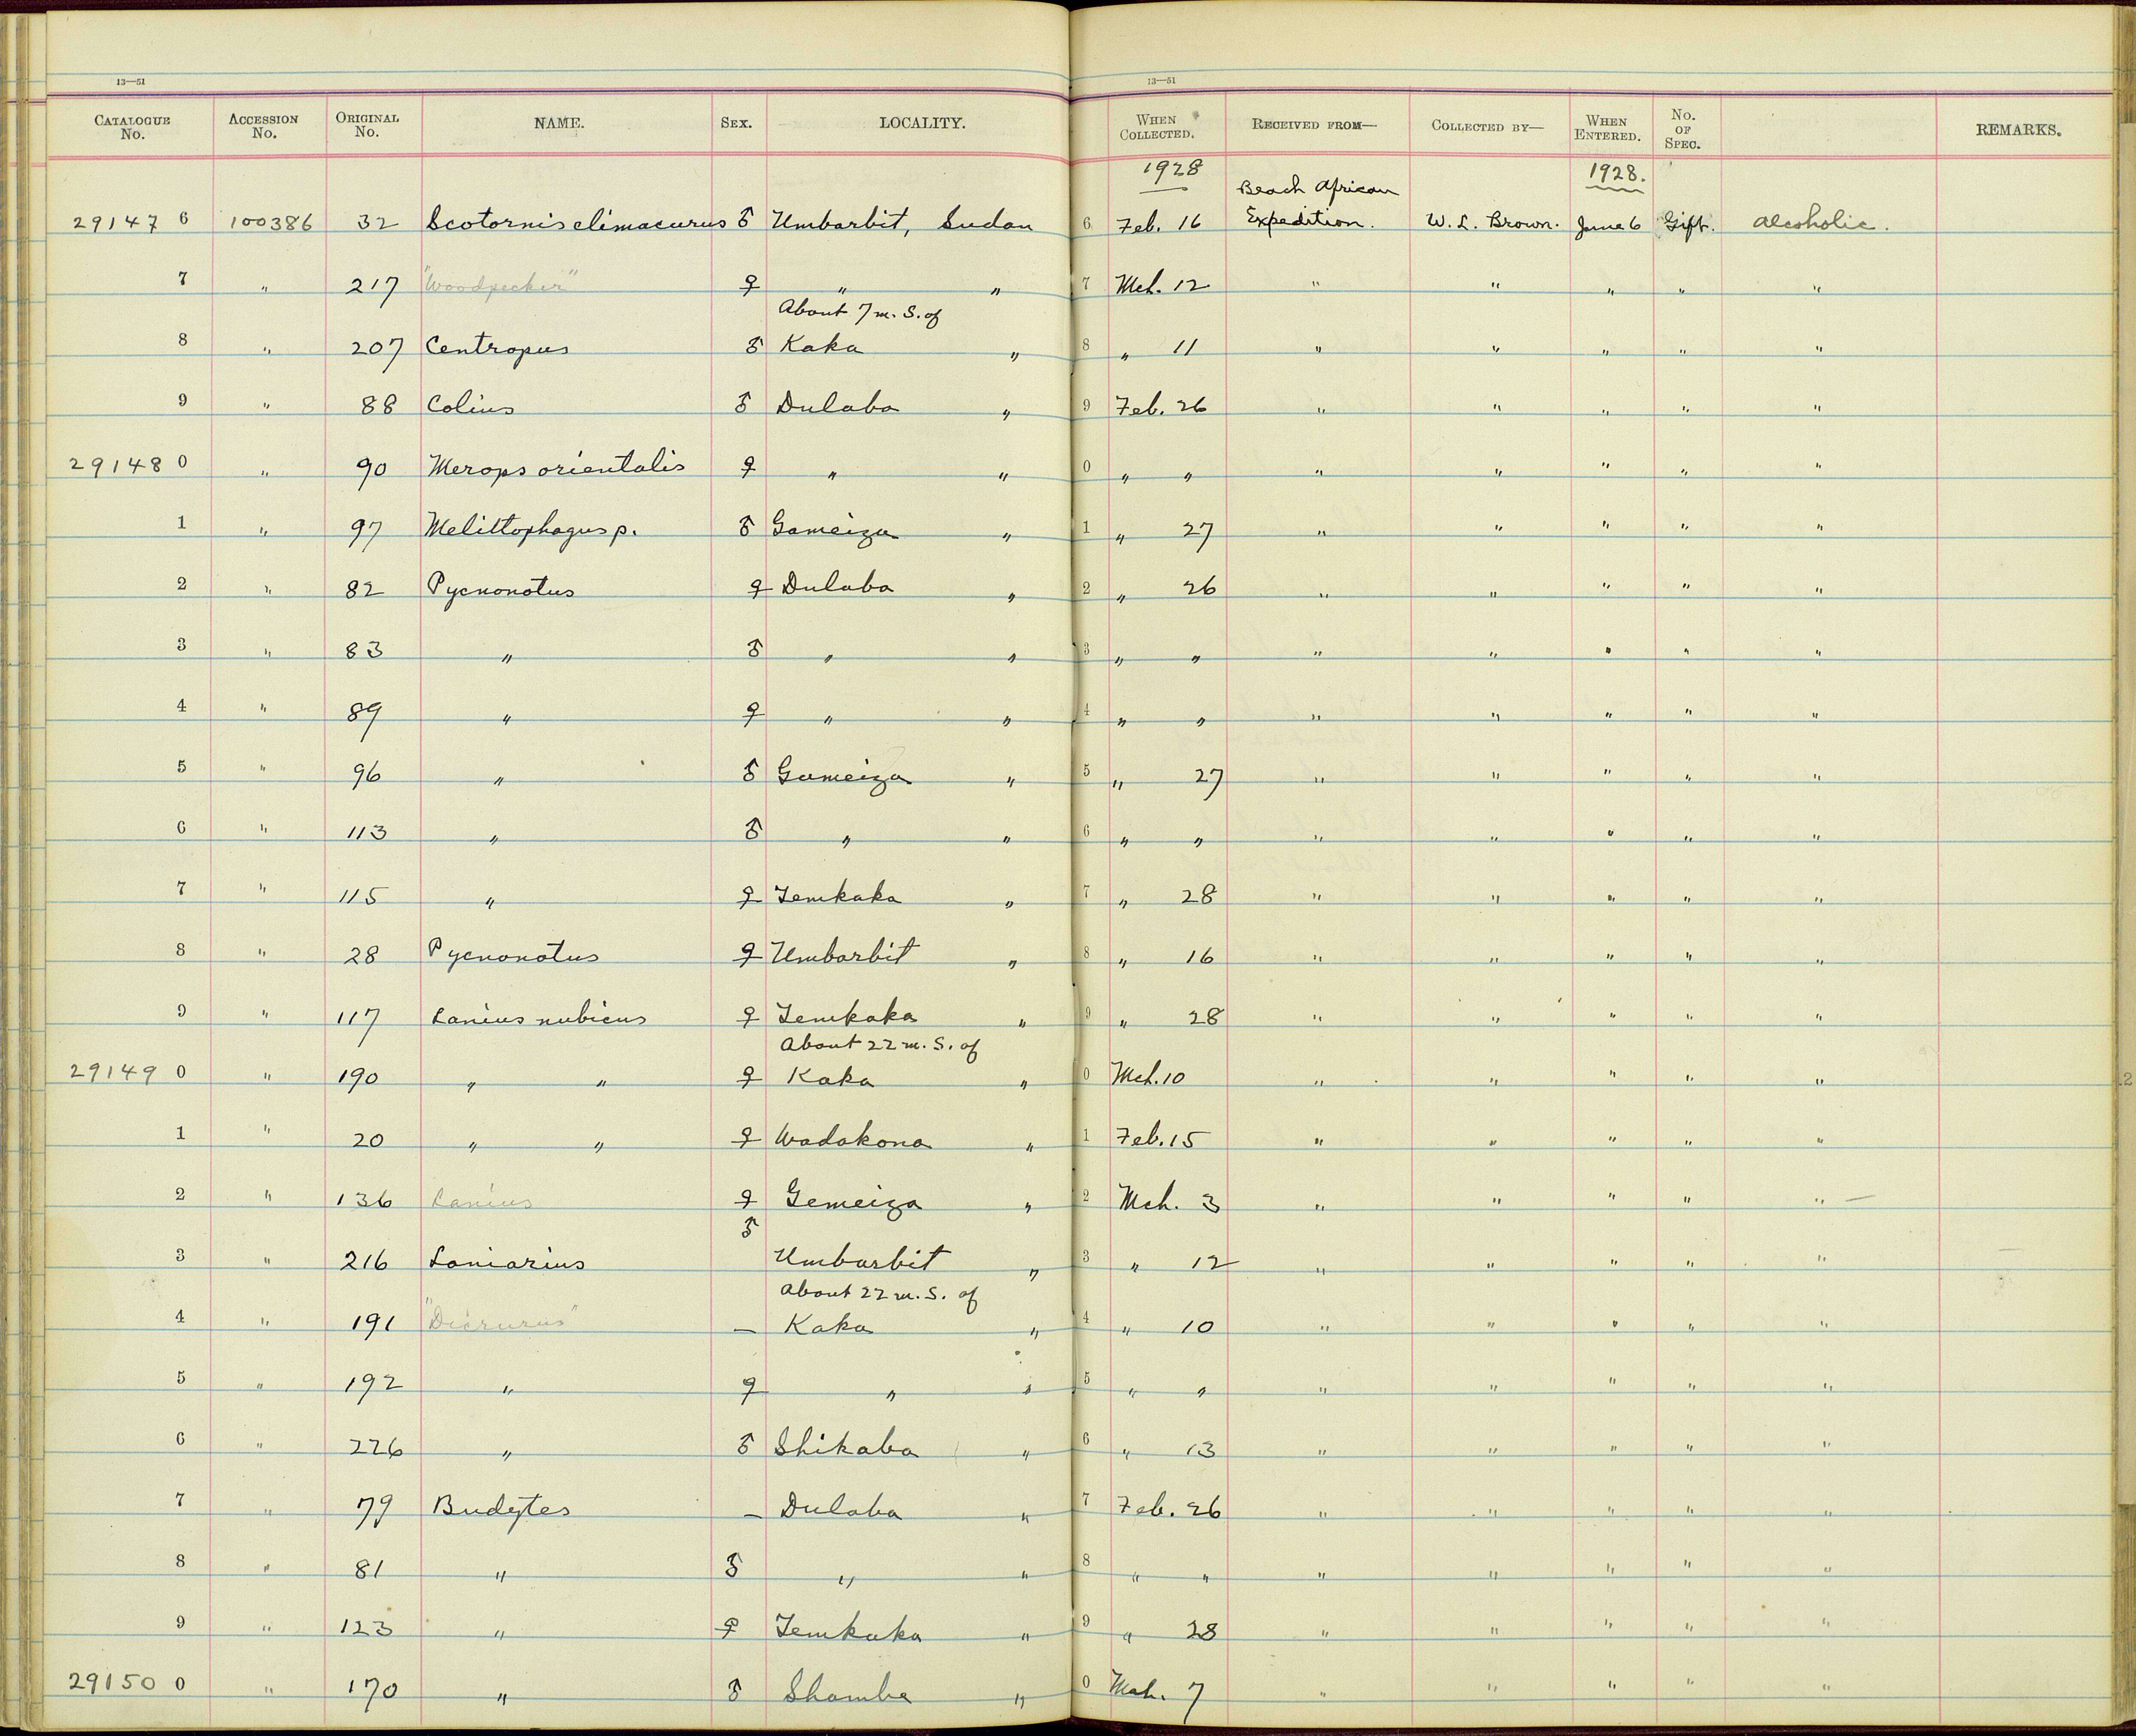 13—51 13—51
CATALOGUE No. ACCESSION No. ORIGINAL No. NAME. SEX. LOCALITY. WHEN COLLECTED. RECEIVED FROM— COLLECTED BY— WHEN ENTERED. No. OF SPEC. REMARKS.
1928 1928.
Beach African
29147 6 100386 32 Scotornis climacurus ♂ Umbarbit, Sudan 6 Feb. 16 Expedition. W. L. Brown. June 6 Gift. Alcoholic.
7 " 217 "Woodpecker" ♀ " " 7 Mch. 12 " " " " "
About 7 m. S. of
8 " 207 Centropus ♂ Kaka " 8 " 11 " " " " "
9 " 88 Colius ♂ Dulaba " 9 Feb. 26 " " " " "
29148 0 " 90 Merops orientalis ♀ " " 0 " " " " " " "
1 " 97 Melittophagus p. ♂ Gameiza " 1 " 27 " " " " "
2 " 82 Pycnonotus ♀ Dulaba " 2 " 26 " " " " "
3 " 83 " ♂ " " 3 " " " " " " "
4 " 89 " ♀ " " 4 " " " " " " "
5 " 96 " ♂ Gameiza " 5 " 27 " " " " "
6 " 113 " ♂ " " 6 " " " " " " "
7 " 115 " ♀ Temkaka " 7 " 28 " " " " "
8 " 28 Pycnonotus ♀ Umbarbit " 8 " 16 " " " " "
9 " 117 Lanius nubicus ♀ Temkaka " 9 " 28 " " " " "
About 22 m. S. of
29149 0 " 190 " " ♀ Kaka " 0 Mch. 10 " " " " "
1 " 20 " " ♀ Wadakona " 1 Feb. 15 " " " " "
2 " 136 Lanius ♀ Gemeiza " 2 Mch. 3 " " " " " —
♂
3 " 216 Laniarius Umbarbit " 3 " 12 " " " " "
About 22 m. S. of
4 " 191 "Dicrurus" — Kaka " 4 " 10 " " " " "
5 " 192 " ♀ " " 5 " " " " " " "
6 " 226 " ♂ Shikaba " 6 " 13 " " " " "
7 " 79 Budytes — Dulaba " 7 Feb. 26 " " " " "
8 " 81 " ♂ " " 8 " " " " " " "
9 " 123 " ♀ Temkaka " 9 " 28 " " " " "
29150 0 " 170 " ♂ Shambe " 0 Mch. 7 " " " " "